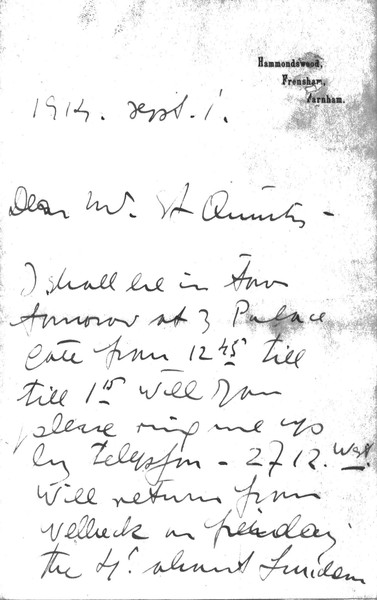 Hammondswood,
Frensham,
Farnham.
1914. Sept. 1.
Dear Mr. St Quintin -
I shall be in Town
tomorow at 3 Palace
Gate from 12 45 till
till 1 15 Will you
please ring me up
by telepfon - 2712. West.
Will return from
Welbeck on
the 4. about